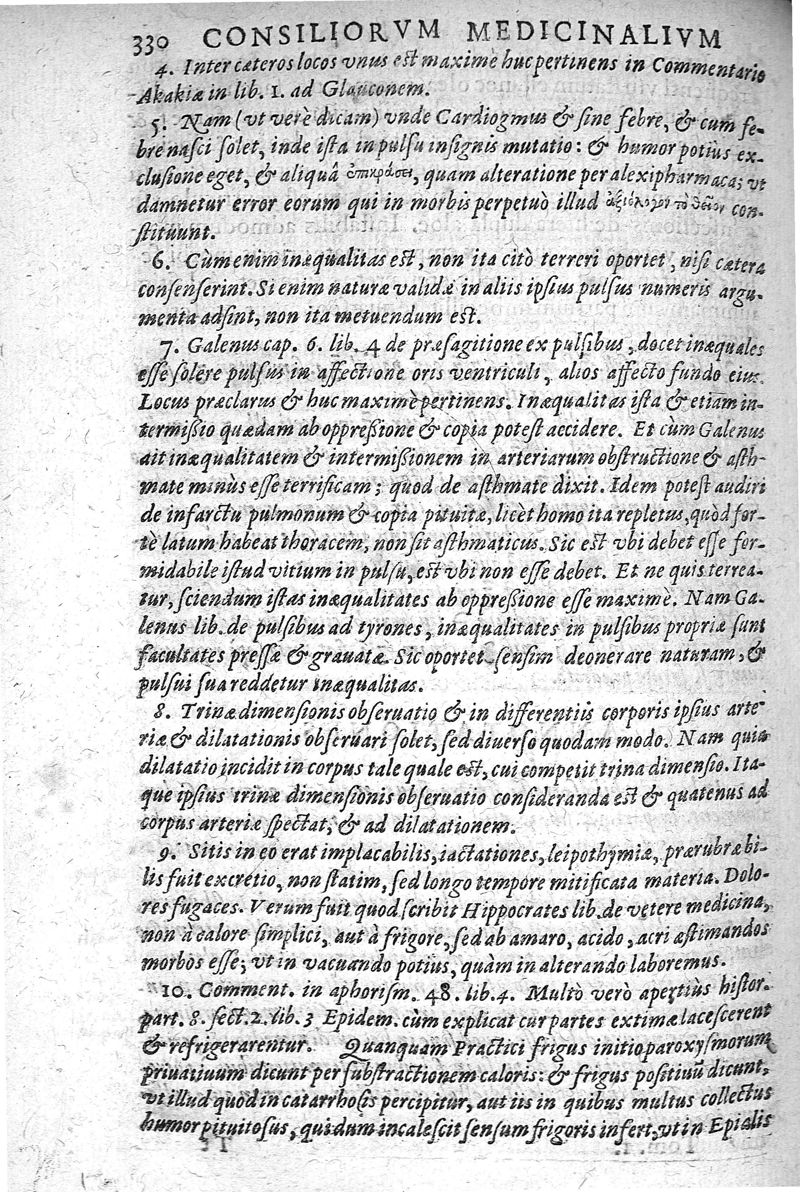 330 CONSILIORVM MEDICINALIVM
4. Inter cæteros locos vnus est maximè huc pertinens in Commentario
Akakiæ in lib. 1. ad Glauconem.
5. Nam (vt verè dicam) vnde Cardiogmus & sine febre, & cum fe-
bre nasci solet, inde ista in pulsu insignis mutatio: & humor potiùs ex-
clusione eget, & aliquâ ἐπικράσει, quam alteratione per alexipharmaca; vt
damnetur error eorum qui in morbis perpetuò illud ἀξιόλογον τὸ θεῖον con-
stituunt.
6. Cùm enim inæqualitas est, non ita citò terreri oportet, nisi cætera
consenserint. Si enim naturæ validæ in aliis ipsius pulsus numeris argu-
menta adsint, non ita metuendum est.
7. Galenus cap. 6. lib. 4 de præsagitione ex pulsibus, docet inæquales
esse solere pulsus in affectione oris ventriculi, alios affecto fundo eius.
Locus præclarus & huc maximè pertinens. Inæqualitas ista & etiam in-
termißio quædam ab oppreßione & copia potest accidere. Et cùm Galenus
ait inæqualitatem & intermißionem in arteriarum obstructione & asth-
mate minùs esse terrificam; quod de asthmate dixit. Idem potest audiri
de infarctu pulmonum & copia pituitæ, licèt homo ita repletus, quòd for-
tè latum habeat thoracem, non sit asthmaticus. Sic est vbi debet esse for-
midabile istud vitium in pulsu, est vbi non esse debet. Et ne quis terrea-
tur, sciendum istas inæqualitates ab oppreßione esse maximè. Nam Ga-
lenus lib. de pulsibus ad tyrones, inæqualitates in pulsibus propriæ sunt
facultates pressæ & grauatæ. Sic oportet sensim deonerare naturam, &
pulsui sua reddetur inæqualitas.
8. Trinæ dimensionis obseruatio & in differentiis corporis ipsius arte-
riæ & dilatationis obseruari solet, sed diuerso quodam modo. Nam quia
dilatatio incidit in corpus tale quale est, cui competit trina dimensio. Ita-
que ipsius trinæ dimensionis obseruatio consideranda est & quatenus ad
corpus arteriæ spectat, & ad dilatationem.
9. Sitis in eo erat implacabilis, iactationes, leipothymiæ, prærubra bi-
lis fuit excretio, non statim, sed longo tempore mitificata materia. Dolo-
res fugaces. Verum fuit quod scribit Hippocrates lib. de vetere medicina,
non à calore simplici, aut à frigore, sed ab amaro, acido, acri æstimandos
morbos esse; vt in vacuando potiùs, quàm in alterando laboremus.
10. Comment. in aphorism. 48. lib. 4. Multò verò apertiùs histor.
part. 8. sect. 2. lib. 3 Epidem. cùm explicat cur partes extimæ lacescerent
& refrigerarentur. Quanquam Practici frigus initio paroxysmorum
priuatiuum dicunt per substractionem caloris: & frigus positiuũ dicunt,
vt illud quod in catarrhosis percipitur, aut iis in quibus multus collectus
humor pituitosus, qui dum incalescit sensum frigoris infert, vt in Epialis